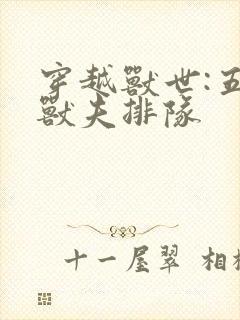 穿越獸世:五
獸夫排隊
十一屋翠 相